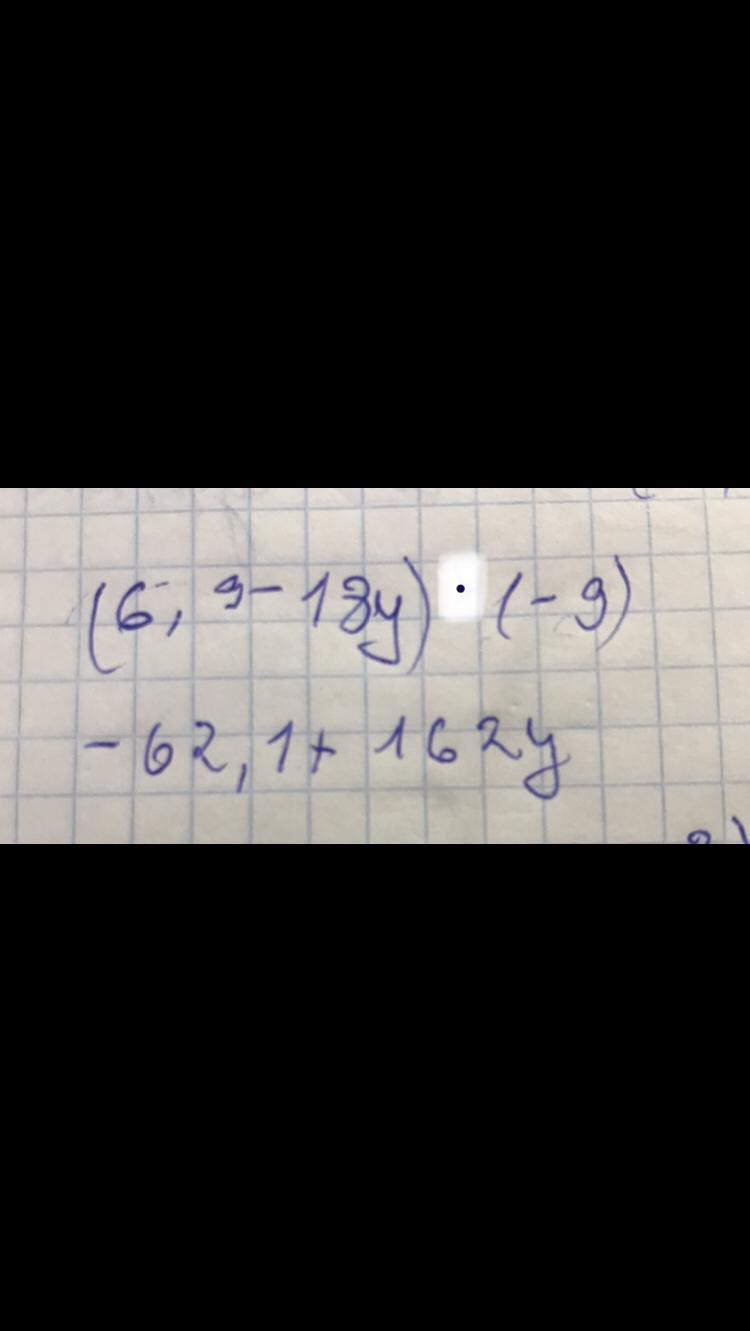 (6,9-18y) · (-9)
-62,1+162y